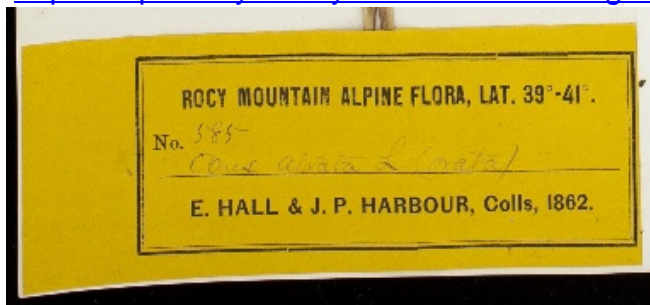 ROCY MOUNTAIN ALPINE FLORA, LAT. 39°-41°.
No. 585
Carex atrata L
E. HALL & J. P. HARBOUR, Colls, 1862.